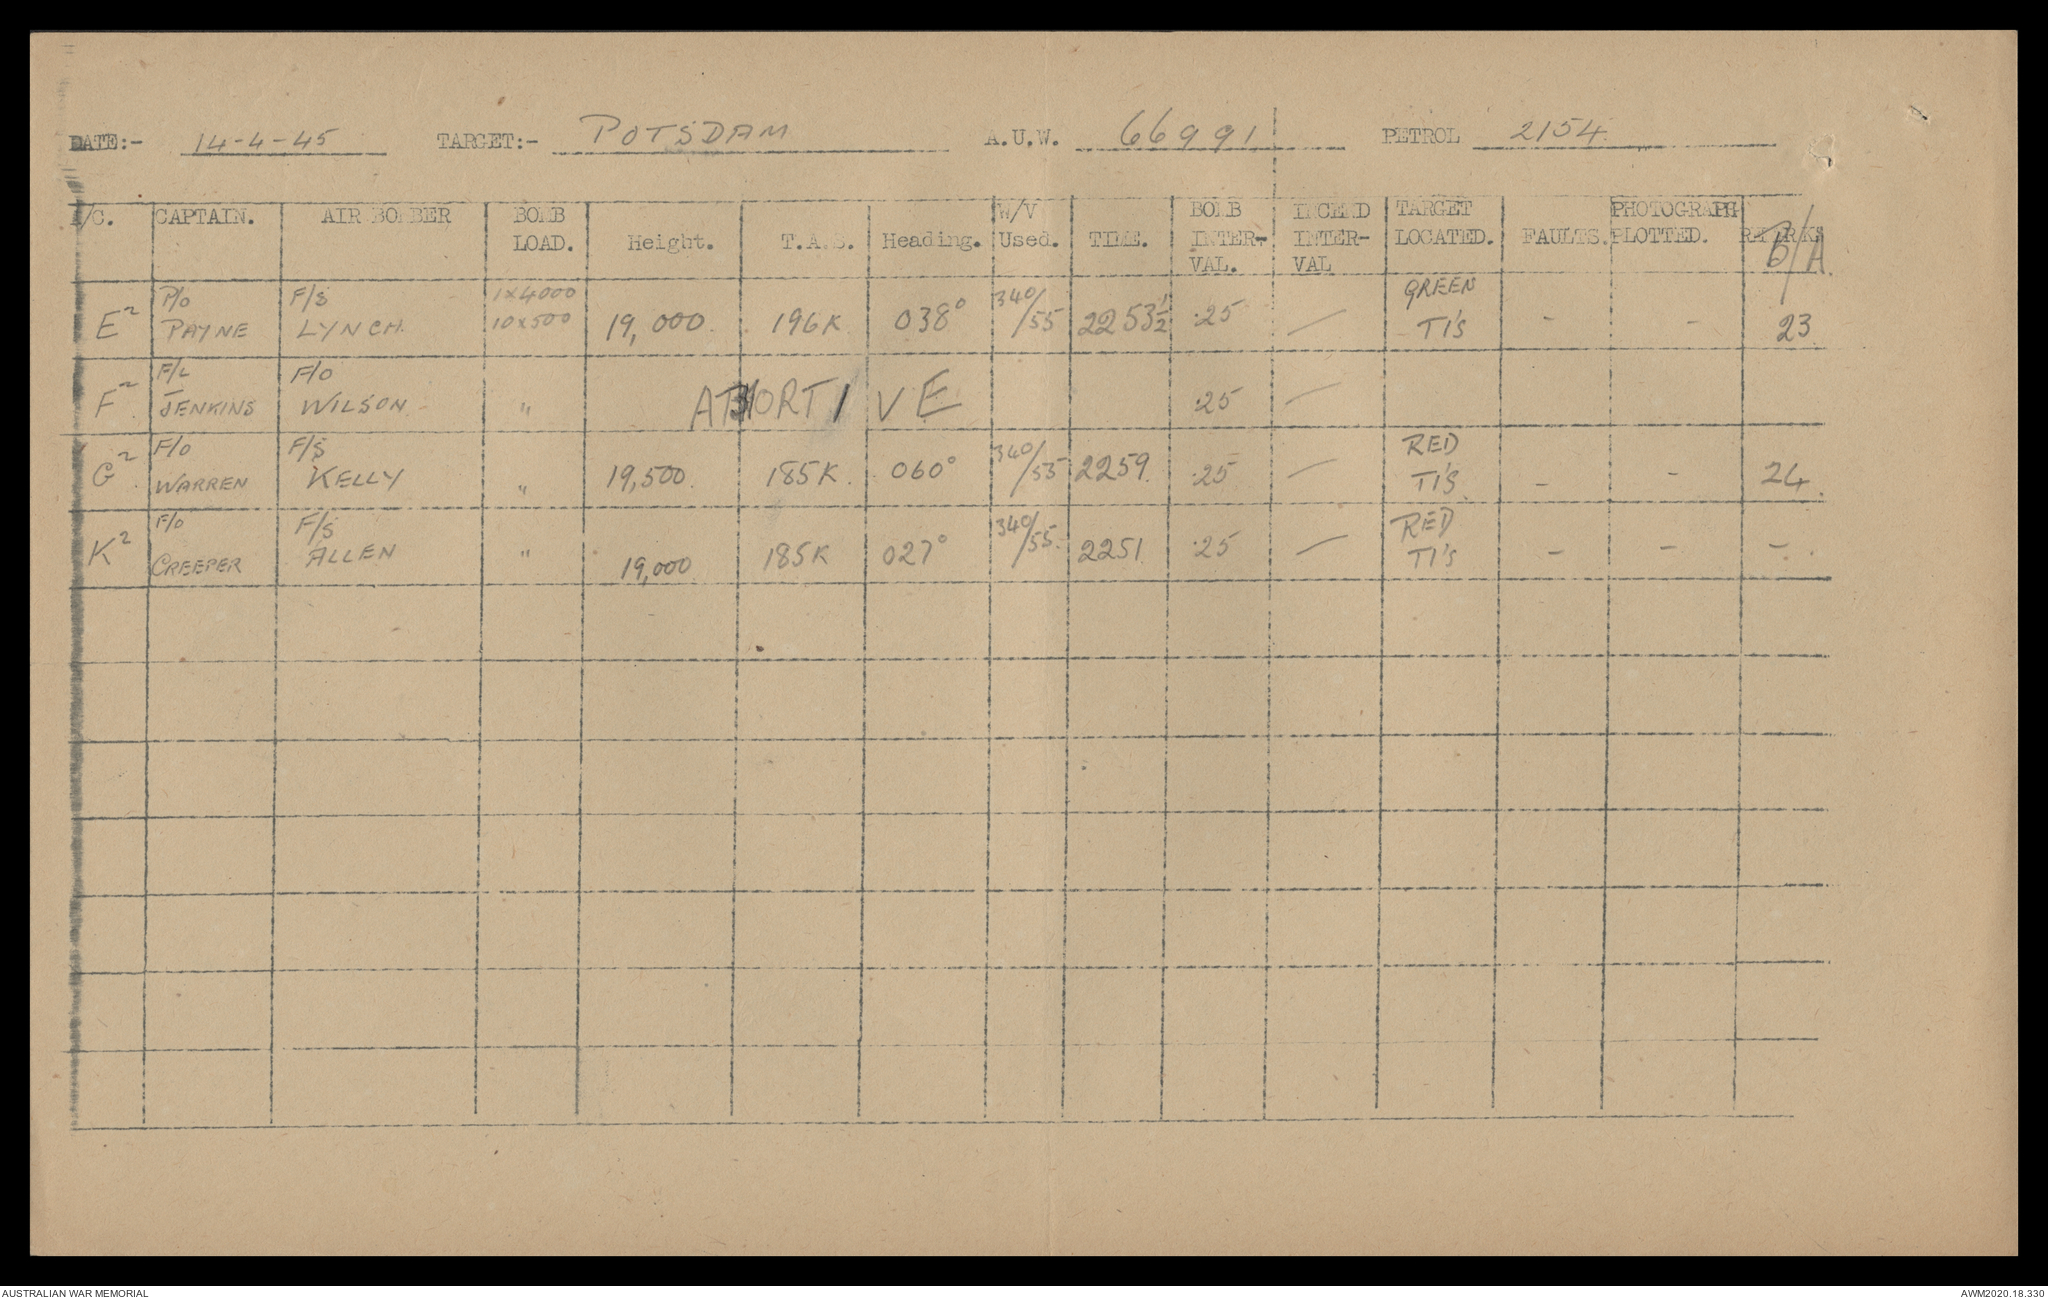 DATE:- 14-4-45 TARGET:- POTSDAM A.U.W. 66991 PETROL 2154.
A/C. CAPTAIN. AIR BOMBER BOMB LOAD. Height. T.A.S. Heading. W/V Used. TIME. BOMB INTER-VAL. INCEND INTER-VAL TARGET LOCATED. FAULTS. PHOTOGRAPH PLOTTED. REMARKS B/A.
E² P/O PAYNE F/S LYNCH. 1x4000 10x500 19,000. 196K. 038° 340/55 2253½ .25 — GREEN TI'S - - 23
F² F/L JENKINS F/O WILSON " ABORTIVE .25 —
G² F/O WARREN F/S KELLY " 19,500. 185K. 060° 340/55 2259. .25 — RED TI'S - - 24.
K² F/O CREEPER F/S ALLEN " 19,000 185K 027° 340/55. 2251 .25 — RED TI'S - - -.
AUSTRALIAN WAR MEMORIAL AWM2020.18.330